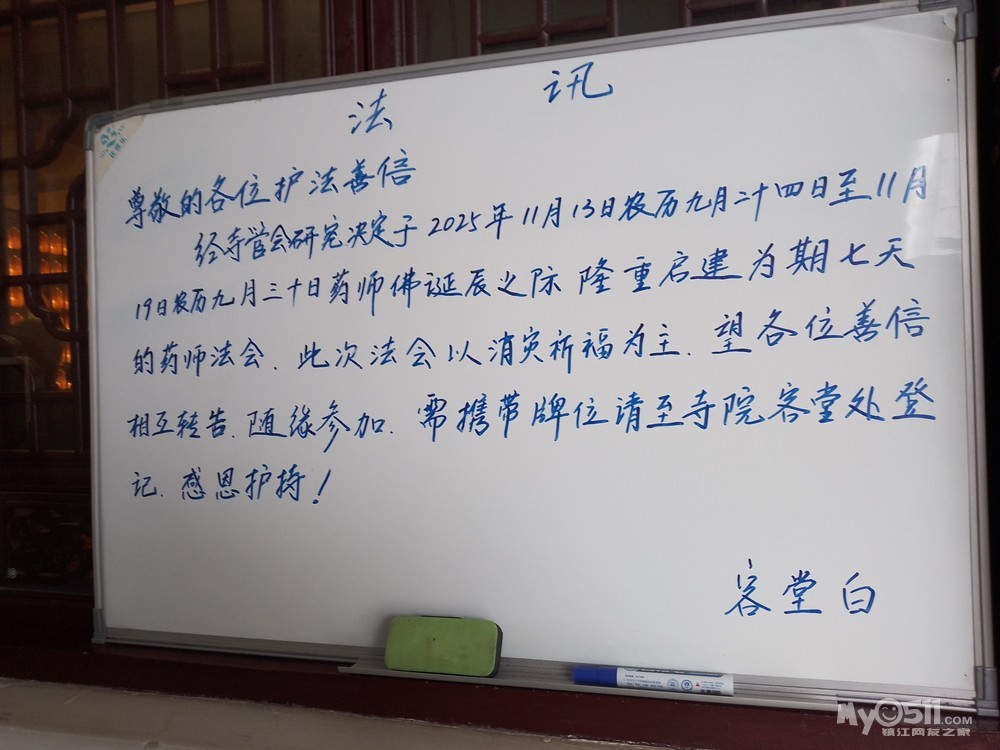 法 讯
尊敬的各位护法善信
经寺管会研究决定于2025年11月13日农历九月二十四日至11月
19日农历九月三十日药师佛诞辰之际 隆重启建为期七天
的药师法会.此次法会以消灾祈福为主.望各位善信
相互转告.随缘参加.需携带牌位请至寺院客堂处登
记.感恩护持!
客堂白
My0511.COM
镇江网友之家